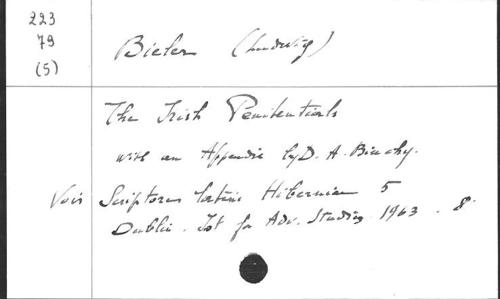 223
79
(5)
Bieler (Ludwig)
The Irish Penitentials
with an Appendix by D. A. Binchy.
Voir Scriptores latini Hiberniae 5
Dublin. Ist for Adv. Studies 1963. 8°